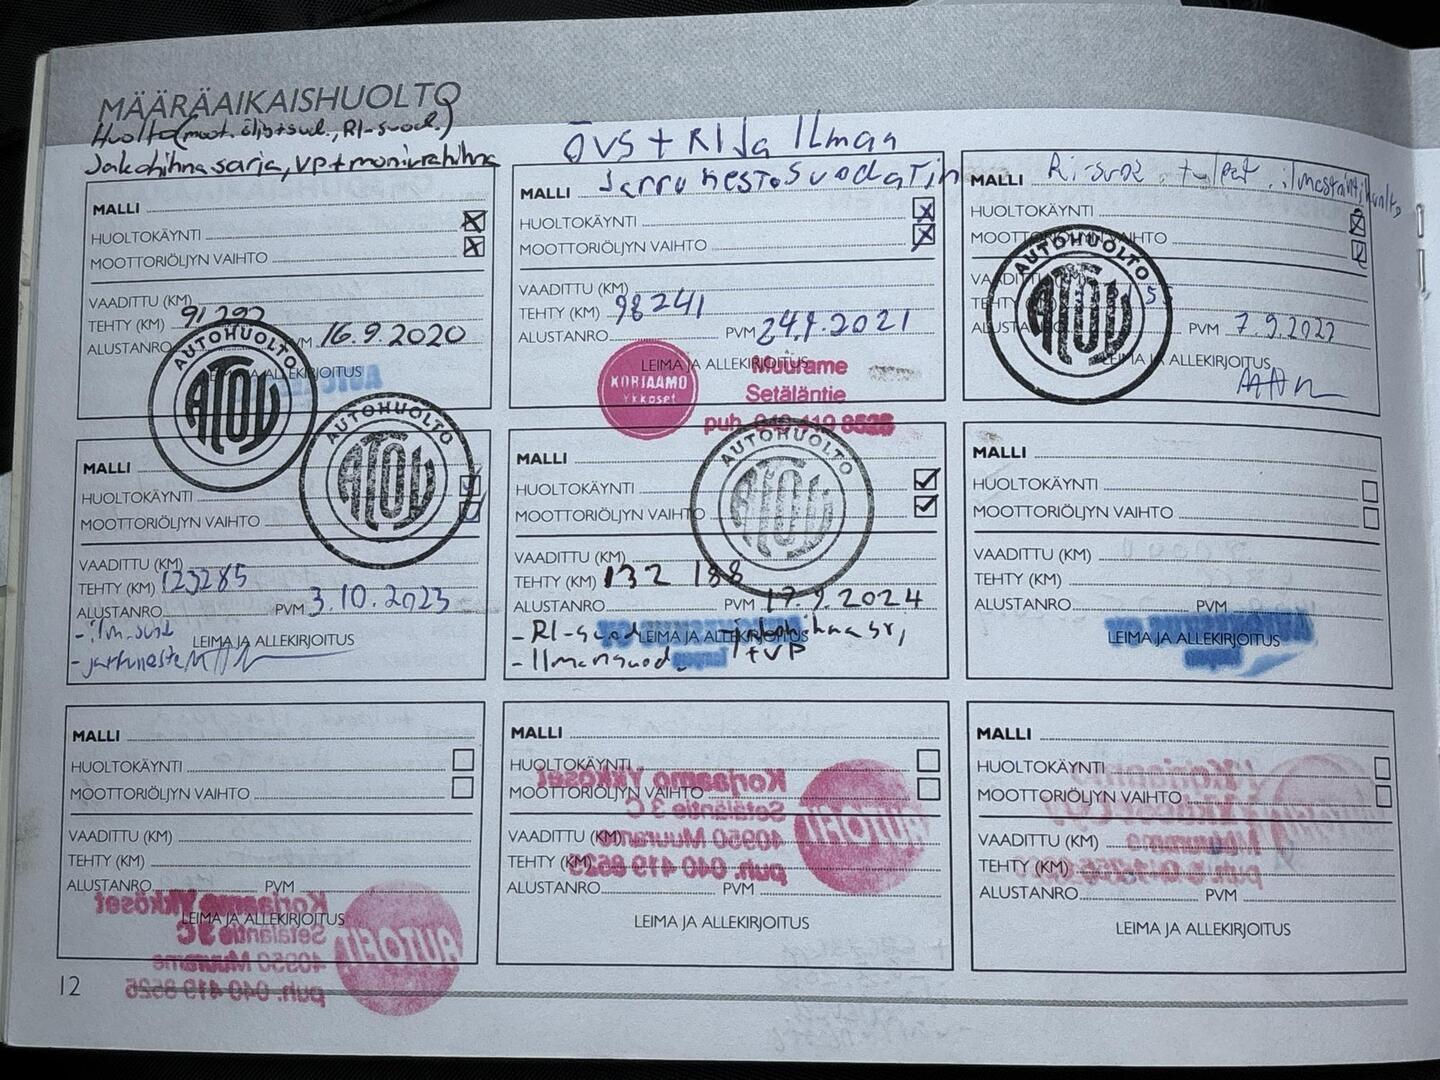 MÄÄRÄAIKAISHUOLTO
Huolto (moot. öljy+suod., RI-suod.)
Jakohihnasarja, VP+moniurahihna
MALLI
HUOLTOKÄYNTI
MOOTTORIÖLJYN VAIHTO
VAADITTU (KM)
TEHTY (KM) 91 292
ALUSTANRO PVM 16.9.2020
LEIMA JA ALLEKIRJOITUS
AUTOHUOLTO
ATOY
ÖVS + RI Ja Ilman
Jarru nesto suodatin
MALLI
HUOLTOKÄYNTI
MOOTTORIÖLJYN VAIHTO
VAADITTU (KM)
TEHTY (KM) 98241
ALUSTANRO PVM 24.9.2021
LEIMA JA ALLEKIRJOITUS
KORJAAMO
Ykköset
Muurame
Setäläntie
puh. 040 419 8525
MALLI Ri-suod
HUOLTOKÄYNTI
MOOTTORIÖLJYN VAIHTO
TEHTY
ALUSTANRO PVM 7.9.2022
LEIMA JA ALLEKIRJOITUS
AUTOHUOLTO
ATOY
MALLI
HUOLTOKÄYNTI
MOOTTORIÖLJYN VAIHTO
VAADITTU (KM)
TEHTY (KM) 123285
ALUSTANRO PVM 3.10.2023
- ilm.suod
LEIMA JA ALLEKIRJOITUS
- jarruneste
AUTOHUOLTO
ATOY
MALLI
HUOLTOKÄYNTI
MOOTTORIÖLJYN VAIHTO
VAADITTU (KM)
TEHTY (KM) 132 188
ALUSTANRO PVM 17.9.2024
- RI-suod - jakohihnasr,
LEIMA JA ALLEKIRJOITUS
- Ilmansuod. +VP
AUTOHUOLTO
ATOY
MALLI
HUOLTOKÄYNTI
MOOTTORIÖLJYN VAIHTO
VAADITTU (KM)
TEHTY (KM)
ALUSTANRO PVM
LEIMA JA ALLEKIRJOITUS
MALLI
HUOLTOKÄYNTI
MOOTTORIÖLJYN VAIHTO
VAADITTU (KM)
TEHTY (KM)
ALUSTANRO PVM
LEIMA JA ALLEKIRJOITUS
Korjaamo Ykköset
Setäläntie 3 C
40950 Muurame
puh. 040 419 8525
AUTOFIT
MALLI
HUOLTOKÄYNTI
MOOTTORIÖLJYN VAIHTO
VAADITTU (KM)
TEHTY (KM)
ALUSTANRO PVM
LEIMA JA ALLEKIRJOITUS
Korjaamo Ykköset
Setäläntie 3 C
40950 Muurame
puh. 040 419 8525
AUTOFIT
MALLI
HUOLTOKÄYNTI
MOOTTORIÖLJYN VAIHTO
VAADITTU (KM)
TEHTY (KM)
ALUSTANRO PVM
LEIMA JA ALLEKIRJOITUS
12